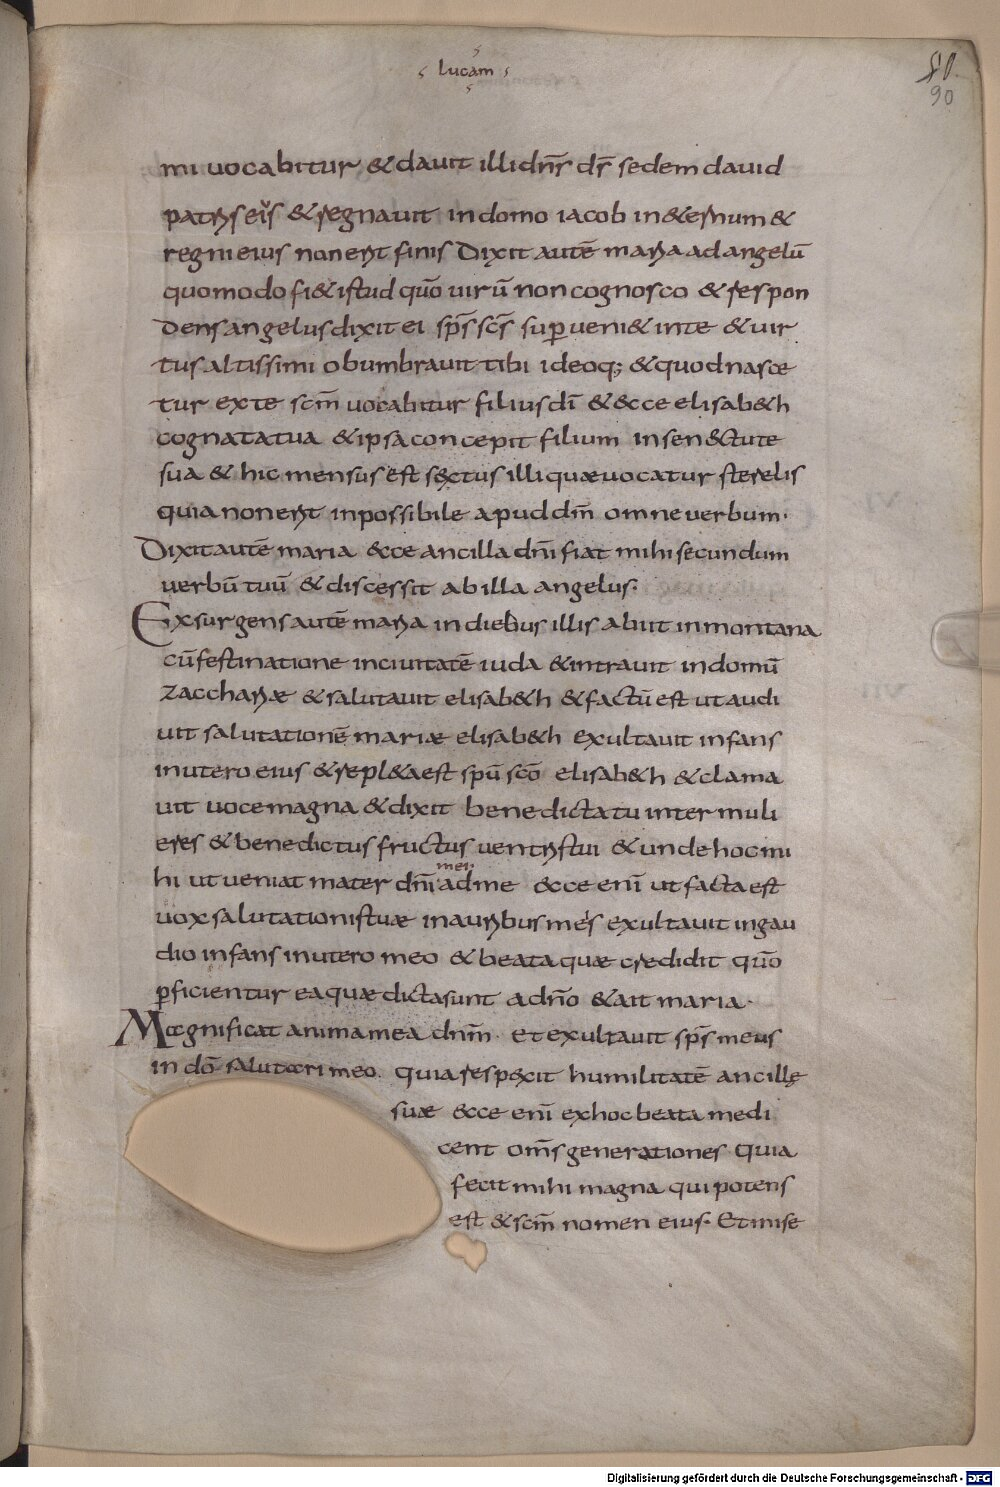 lucam
90
mi uocabitur & dauit illi dn̄s ds̄ sedem dauid
patris eius & regnauit in domo iacob in &ernum &
regni eius non erit finis Dixit autē maria ad angelū
quomodo fi& istud quō uirū non cognosco & respon
dens angelus dixit ei sp̄s sc̄s superueni& in te & uir
tus altissimi obumbrauit tibi ideoq; & quod nasce
tur ex te sc̄m uocabitur filius dī & ecce elisab&h
cognata tua & ipsa concepit filium in sen&tute
sua & hic mensus est sextus illi quae uocatur sterelis
quia non erit inpossibile apud dm̄ omne uerbum·
Dixit autē maria ecce ancilla dn̄i fiat mihi secundum
uerbū tuū & discessit ab illa angelus·
Exsurgens autē maria in diebus illis abiit in montana
cū festinatione in ciuitatē iuda & intrauit in domū
zacchariæ & salutauit elisab&h & factū est ut audi
uit salutationē mariæ elisab&h exultauit infans
in utero eius & repl&a est spū scō elisab&h & clama
uit uoce magna & dixit benedicta tu inter muli
eres & benedictus fructus uentris tui & unde hoc mi
hi ut ueniat mater dn̄i mei ad me ecce enī ut facta est
uox salutationis tuæ in auribus meis exultauit in gau
dio infans in utero meo & beata quæ credidit quō
ꝑficientur ea quæ dicta sunt a dn̄o & ait maria·
Magnificat anima mea dnm̄· et exultauit sp̄s meus
in dō salutari meo quia respexit humilitatē ancille
suæ ecce enī ex hoc beata me di
cent om̄s generationes Quia
fecit mihi magna qui potens
est & sc̄m nomen eius· Et mise
Digitalisierung gefördert durch die Deutsche Forschungsgemeinschaft - DFG